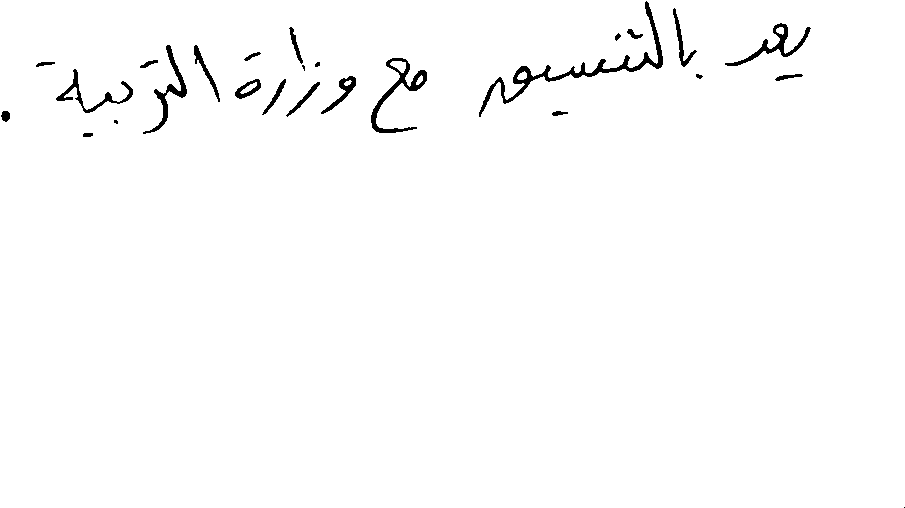 يعد بالتنسيق مع وزارة التربية .